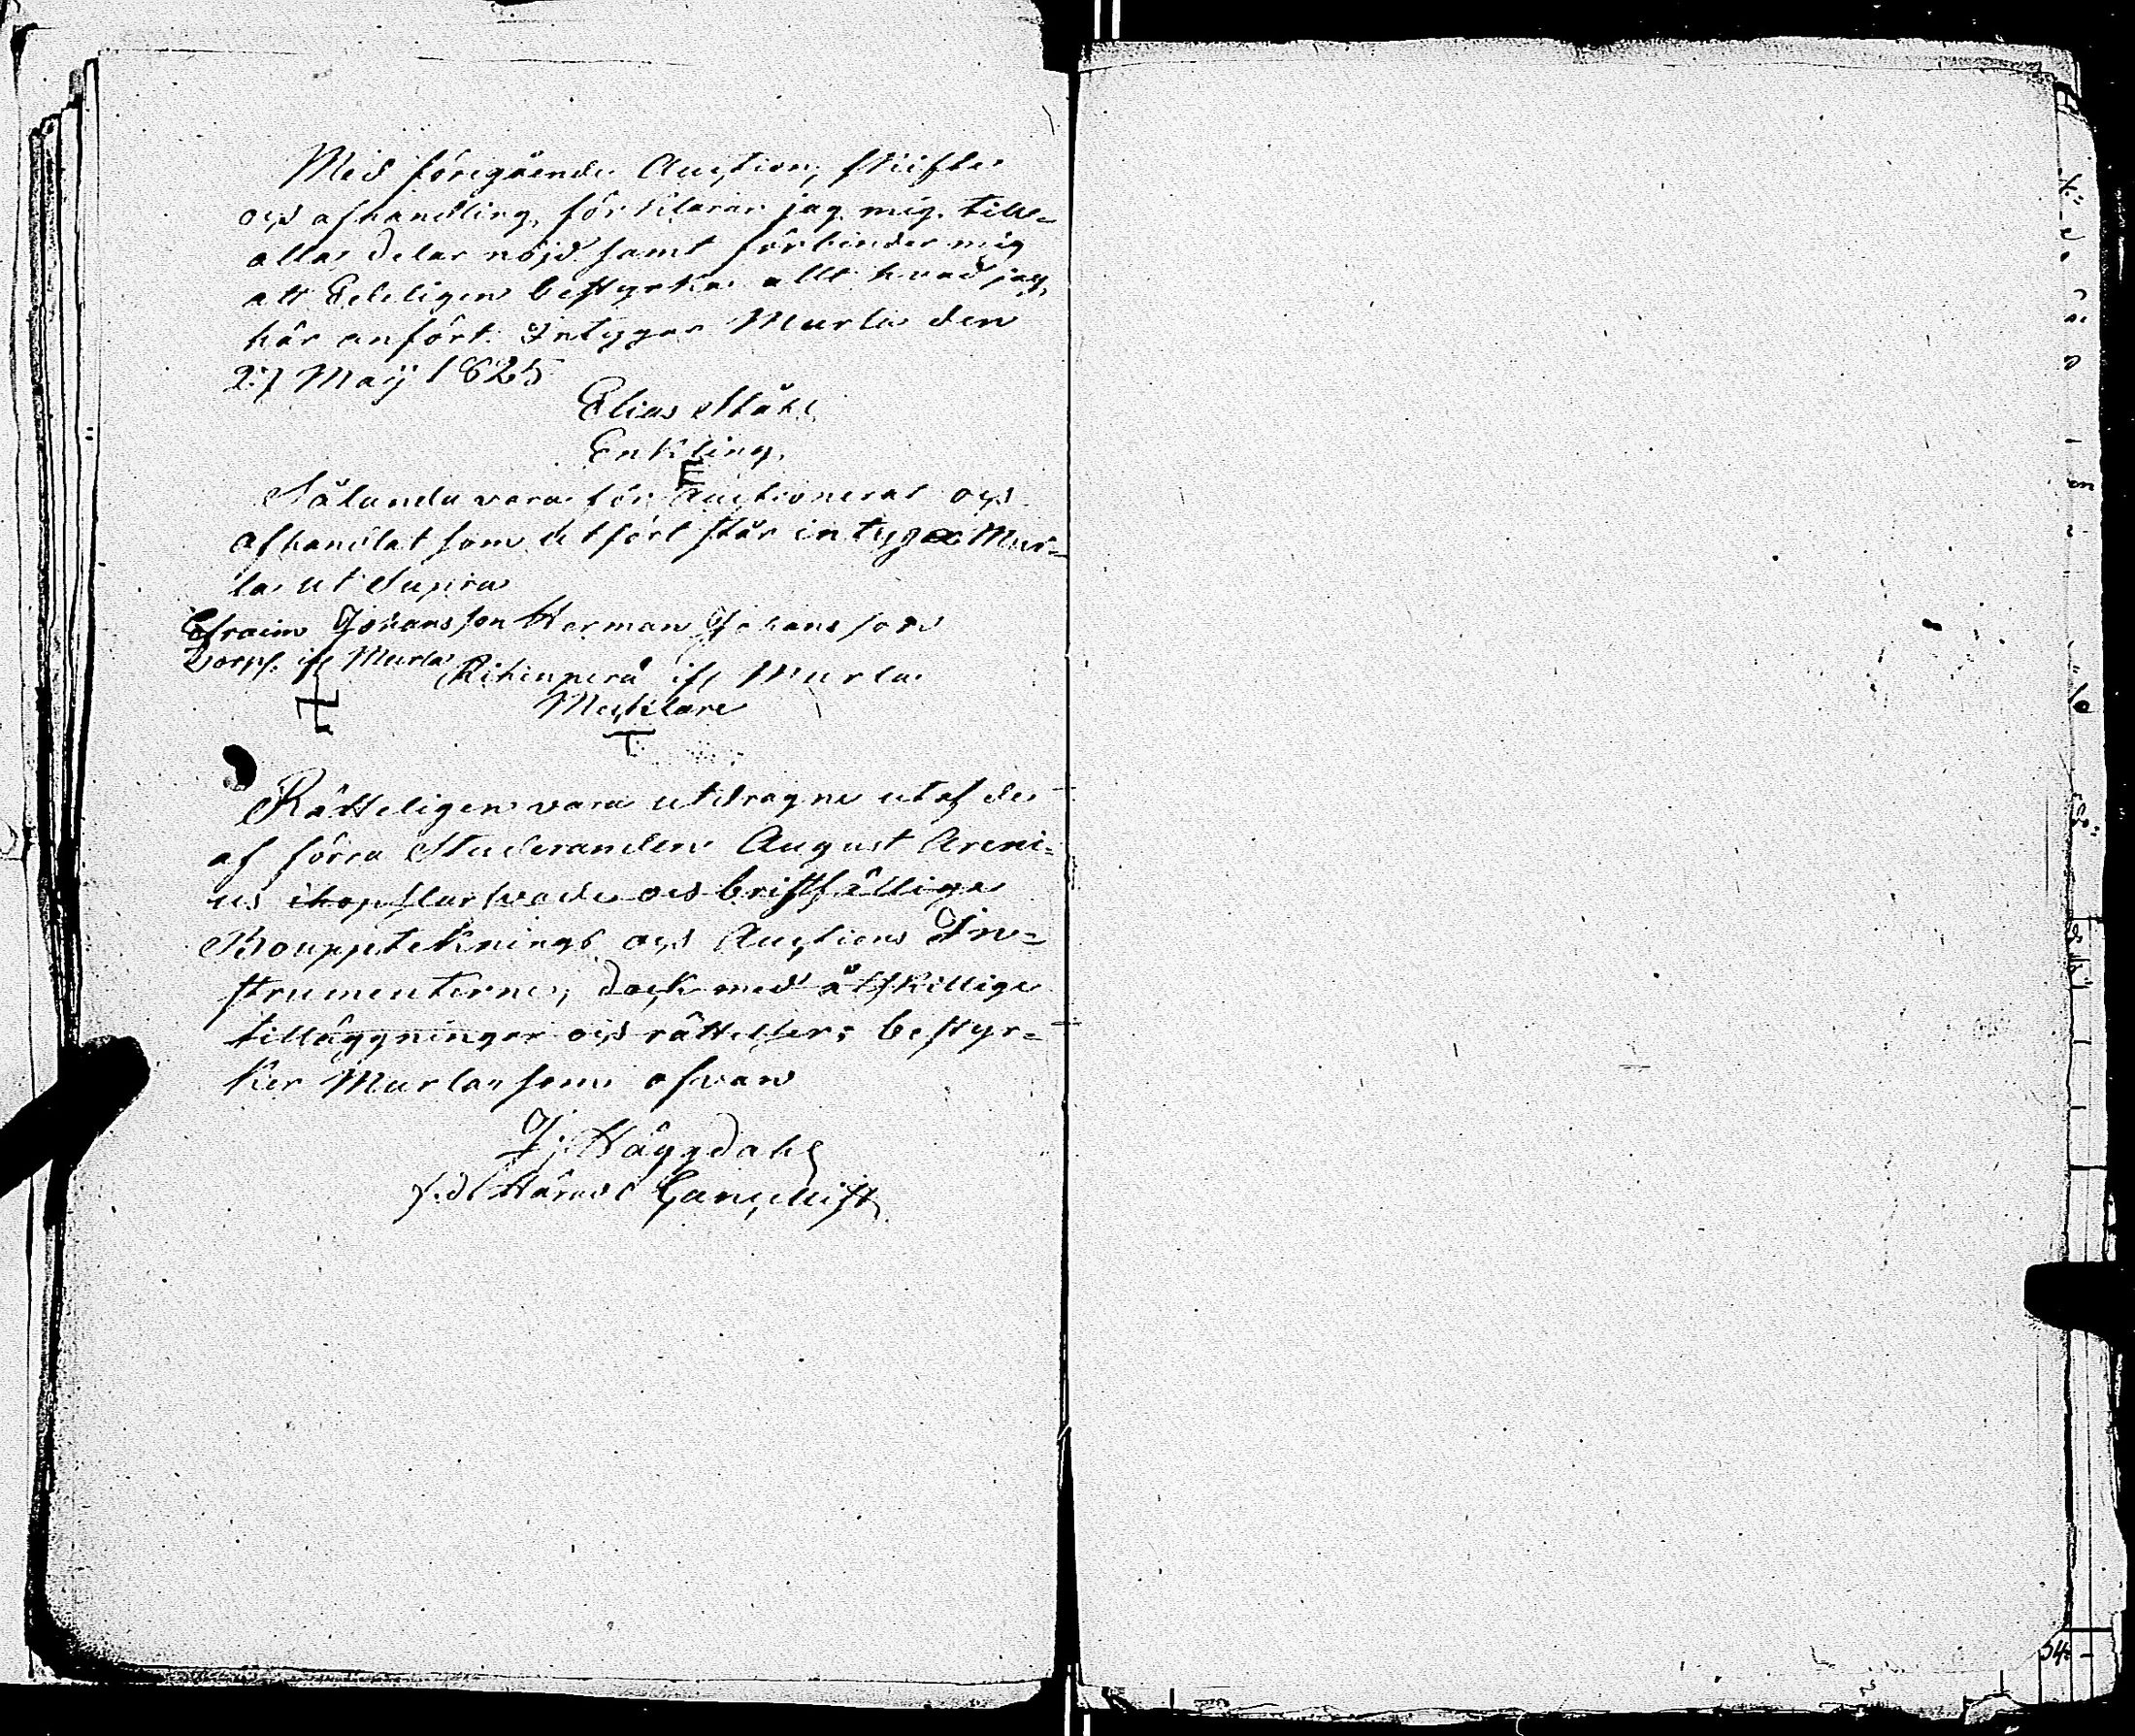 Med föregående Auction, skifte
och afhandling, förklarar jag mig till
alla delar nöjd samt förbinder mig
att Edeligen bestyrka allt hvad jag
här anfört. Intygar Murla den
27 Maij 1825
Elias Ståhl
Enkling.
E
Sålunda vara för Auctionerat och
afhandlat som utfört står intyga Mur-
la ut Supra
Efraim Johansson Herman Johansson
Torp. ifr Murla Rihenperä ifr Murla
Mäklare
T
Rätteligen vara utdragne utaf de
af förra Studeranden August Areni-
us ihopslarfvade och bristfällige
Bouppteknings och Auctions In-
strumenterne, dock med åtskillige
tilläggningar och rättelser; bestyr-
ker Murla som ofvan
J: Häggdahl
f.d Härads Cancellist
54: